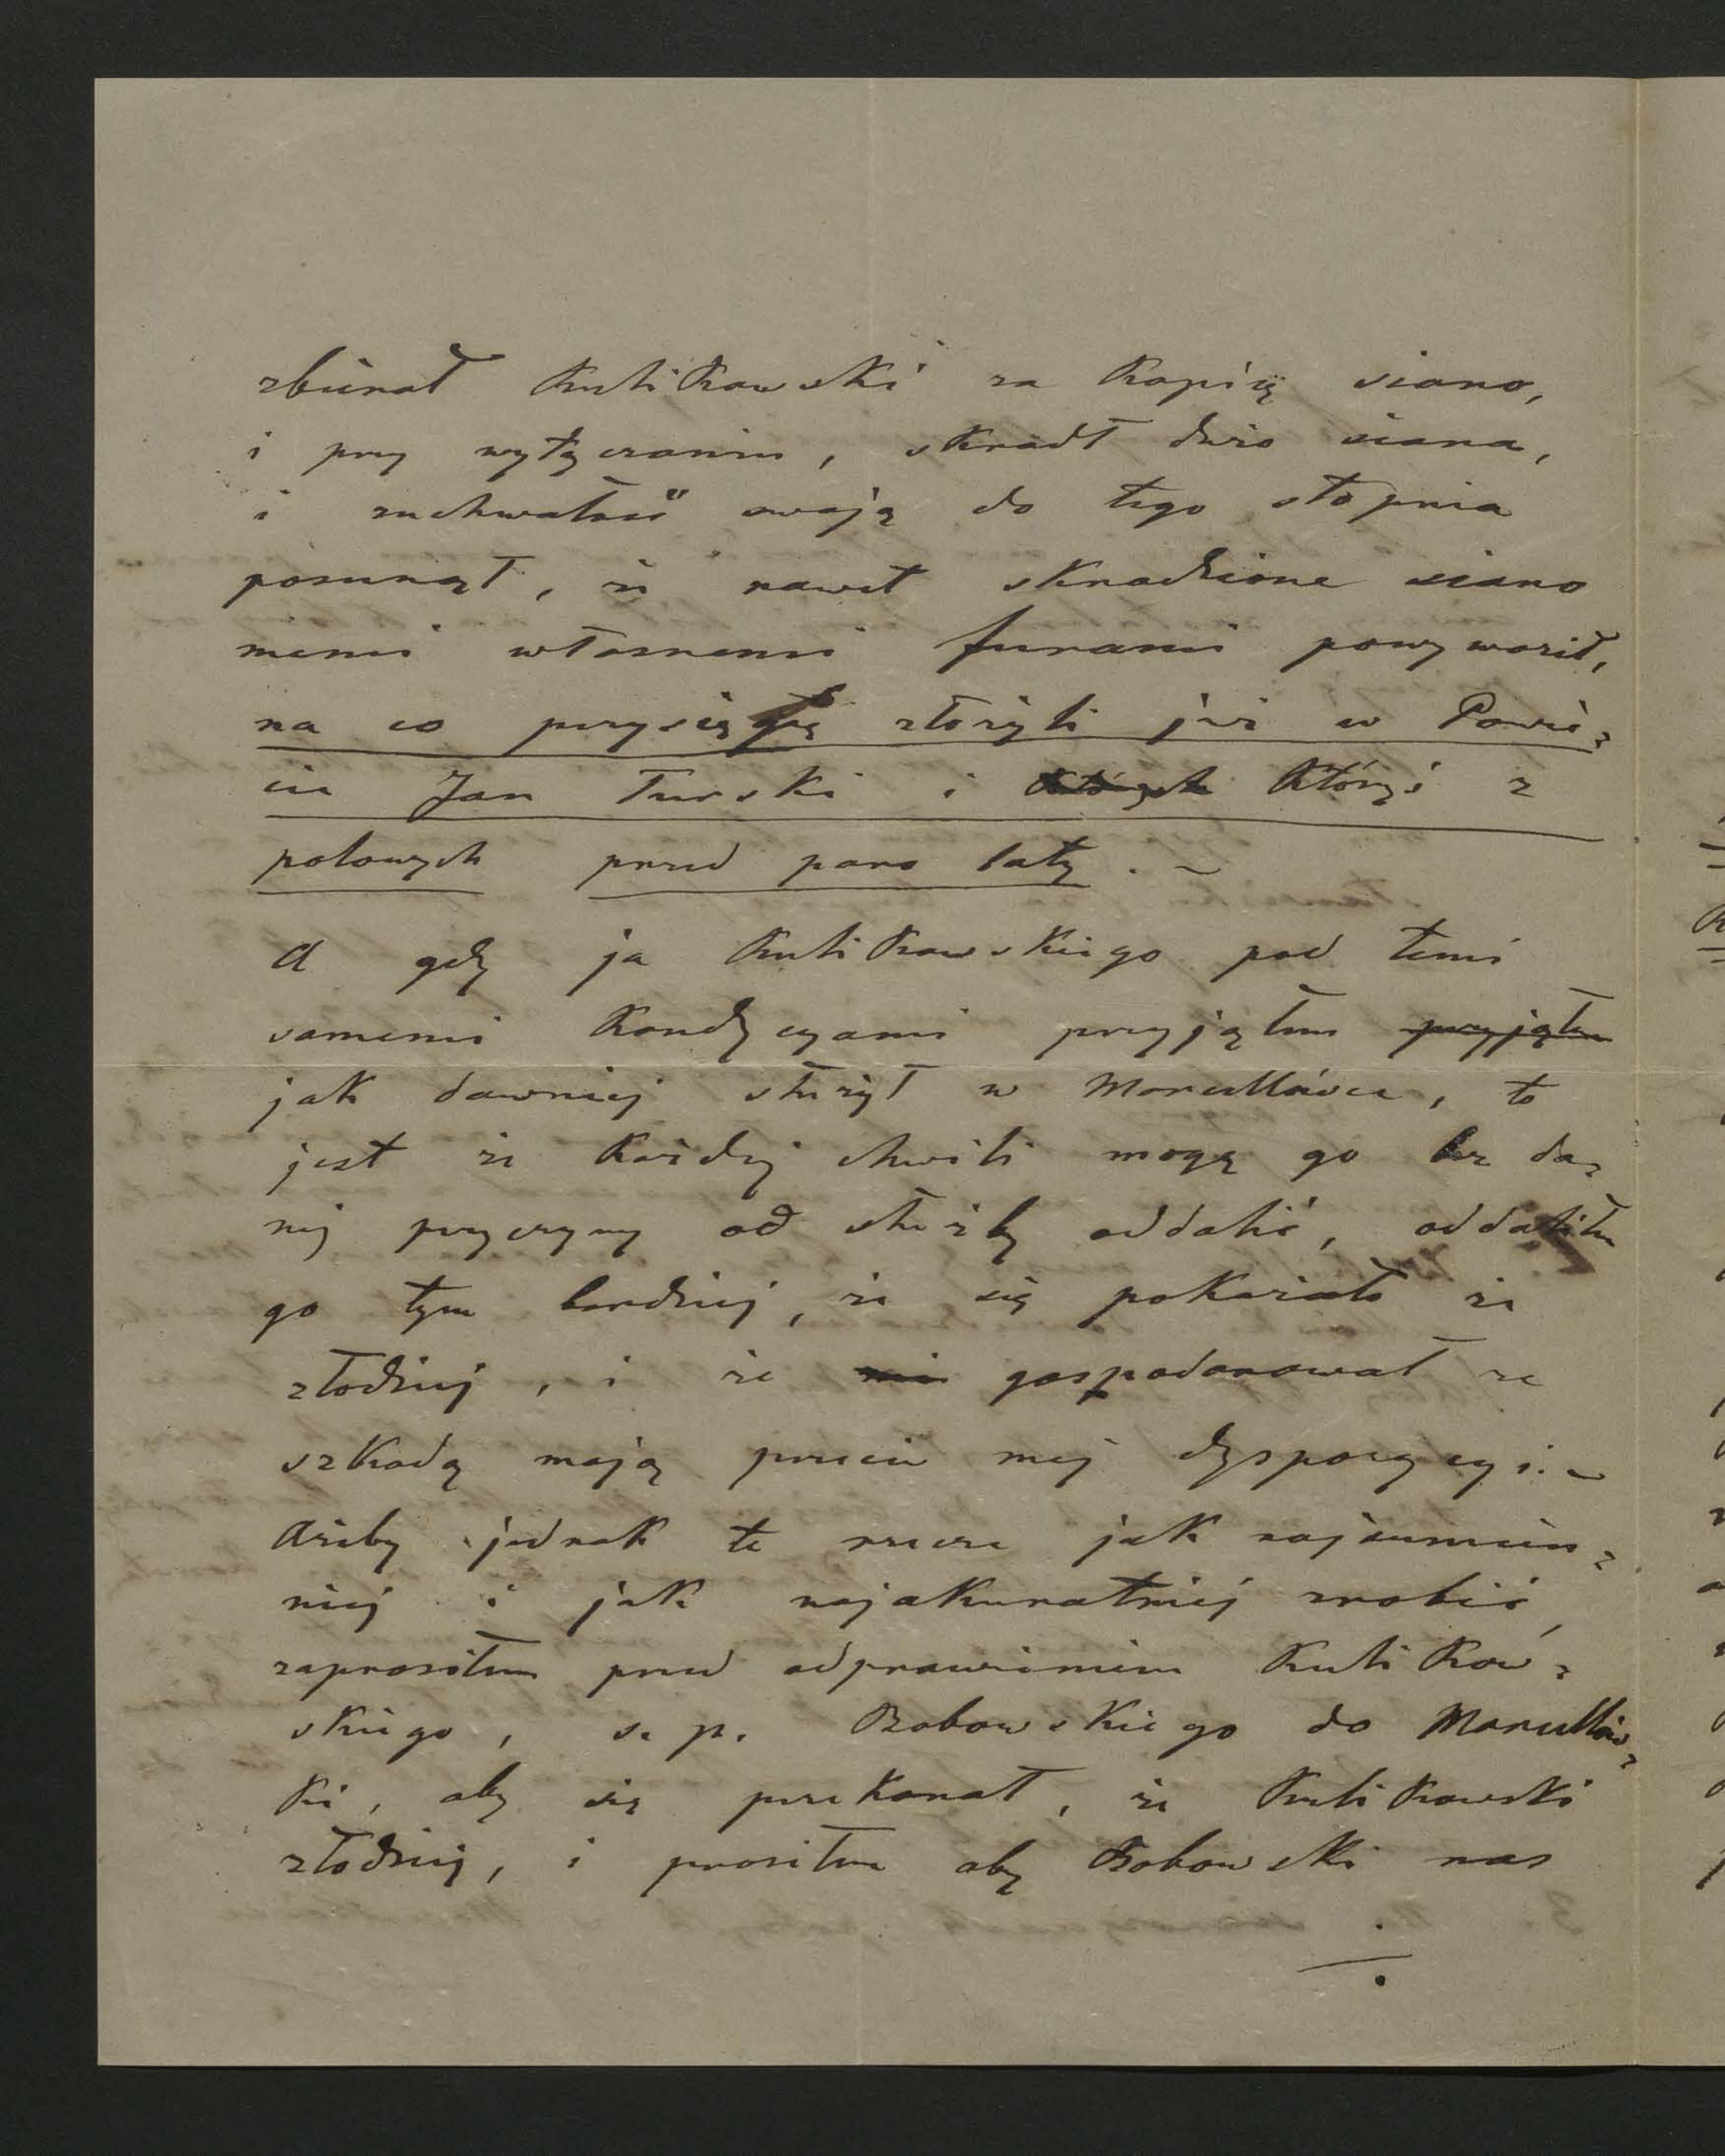 zbierał Kulikowski za kopię siano,
i przy wyłączaniu, skradł dużo siana,
i zuchwałość swoją do tego stopnia
posunął, że nawet skradzione siano
memi własnemi furami powywoził,
na co przysięgę złożyli już w Powie-
cie Jan Turski i których któryś z
polowych przed paro laty. ~
A gdy ja Kulikowskiego pod temi
samemi kondycyami przyjąłem przyjąłem
jak dawniej służył w Marcellówce, to
jest że każdej chwili mogę go bez da-
nej przyczyny od służby oddalić, oddaliłem
go tym bardziej, że się pokazało że
złodziej, i że nie gospodarował ze
szkodą moją przeciw mej dyspozycyi. ~
Ażeby jednak te rzeczy jak najsumien-
niej i jak najakuratniej zrobić,
zaprosiłem przed odprawieniem Kulikow-
skiego, s. p. Bobowskiego do Marcellów-
ki, aby się przekonał, że Kulikowski
złodziej, i prosiłem aby Bobowski nas